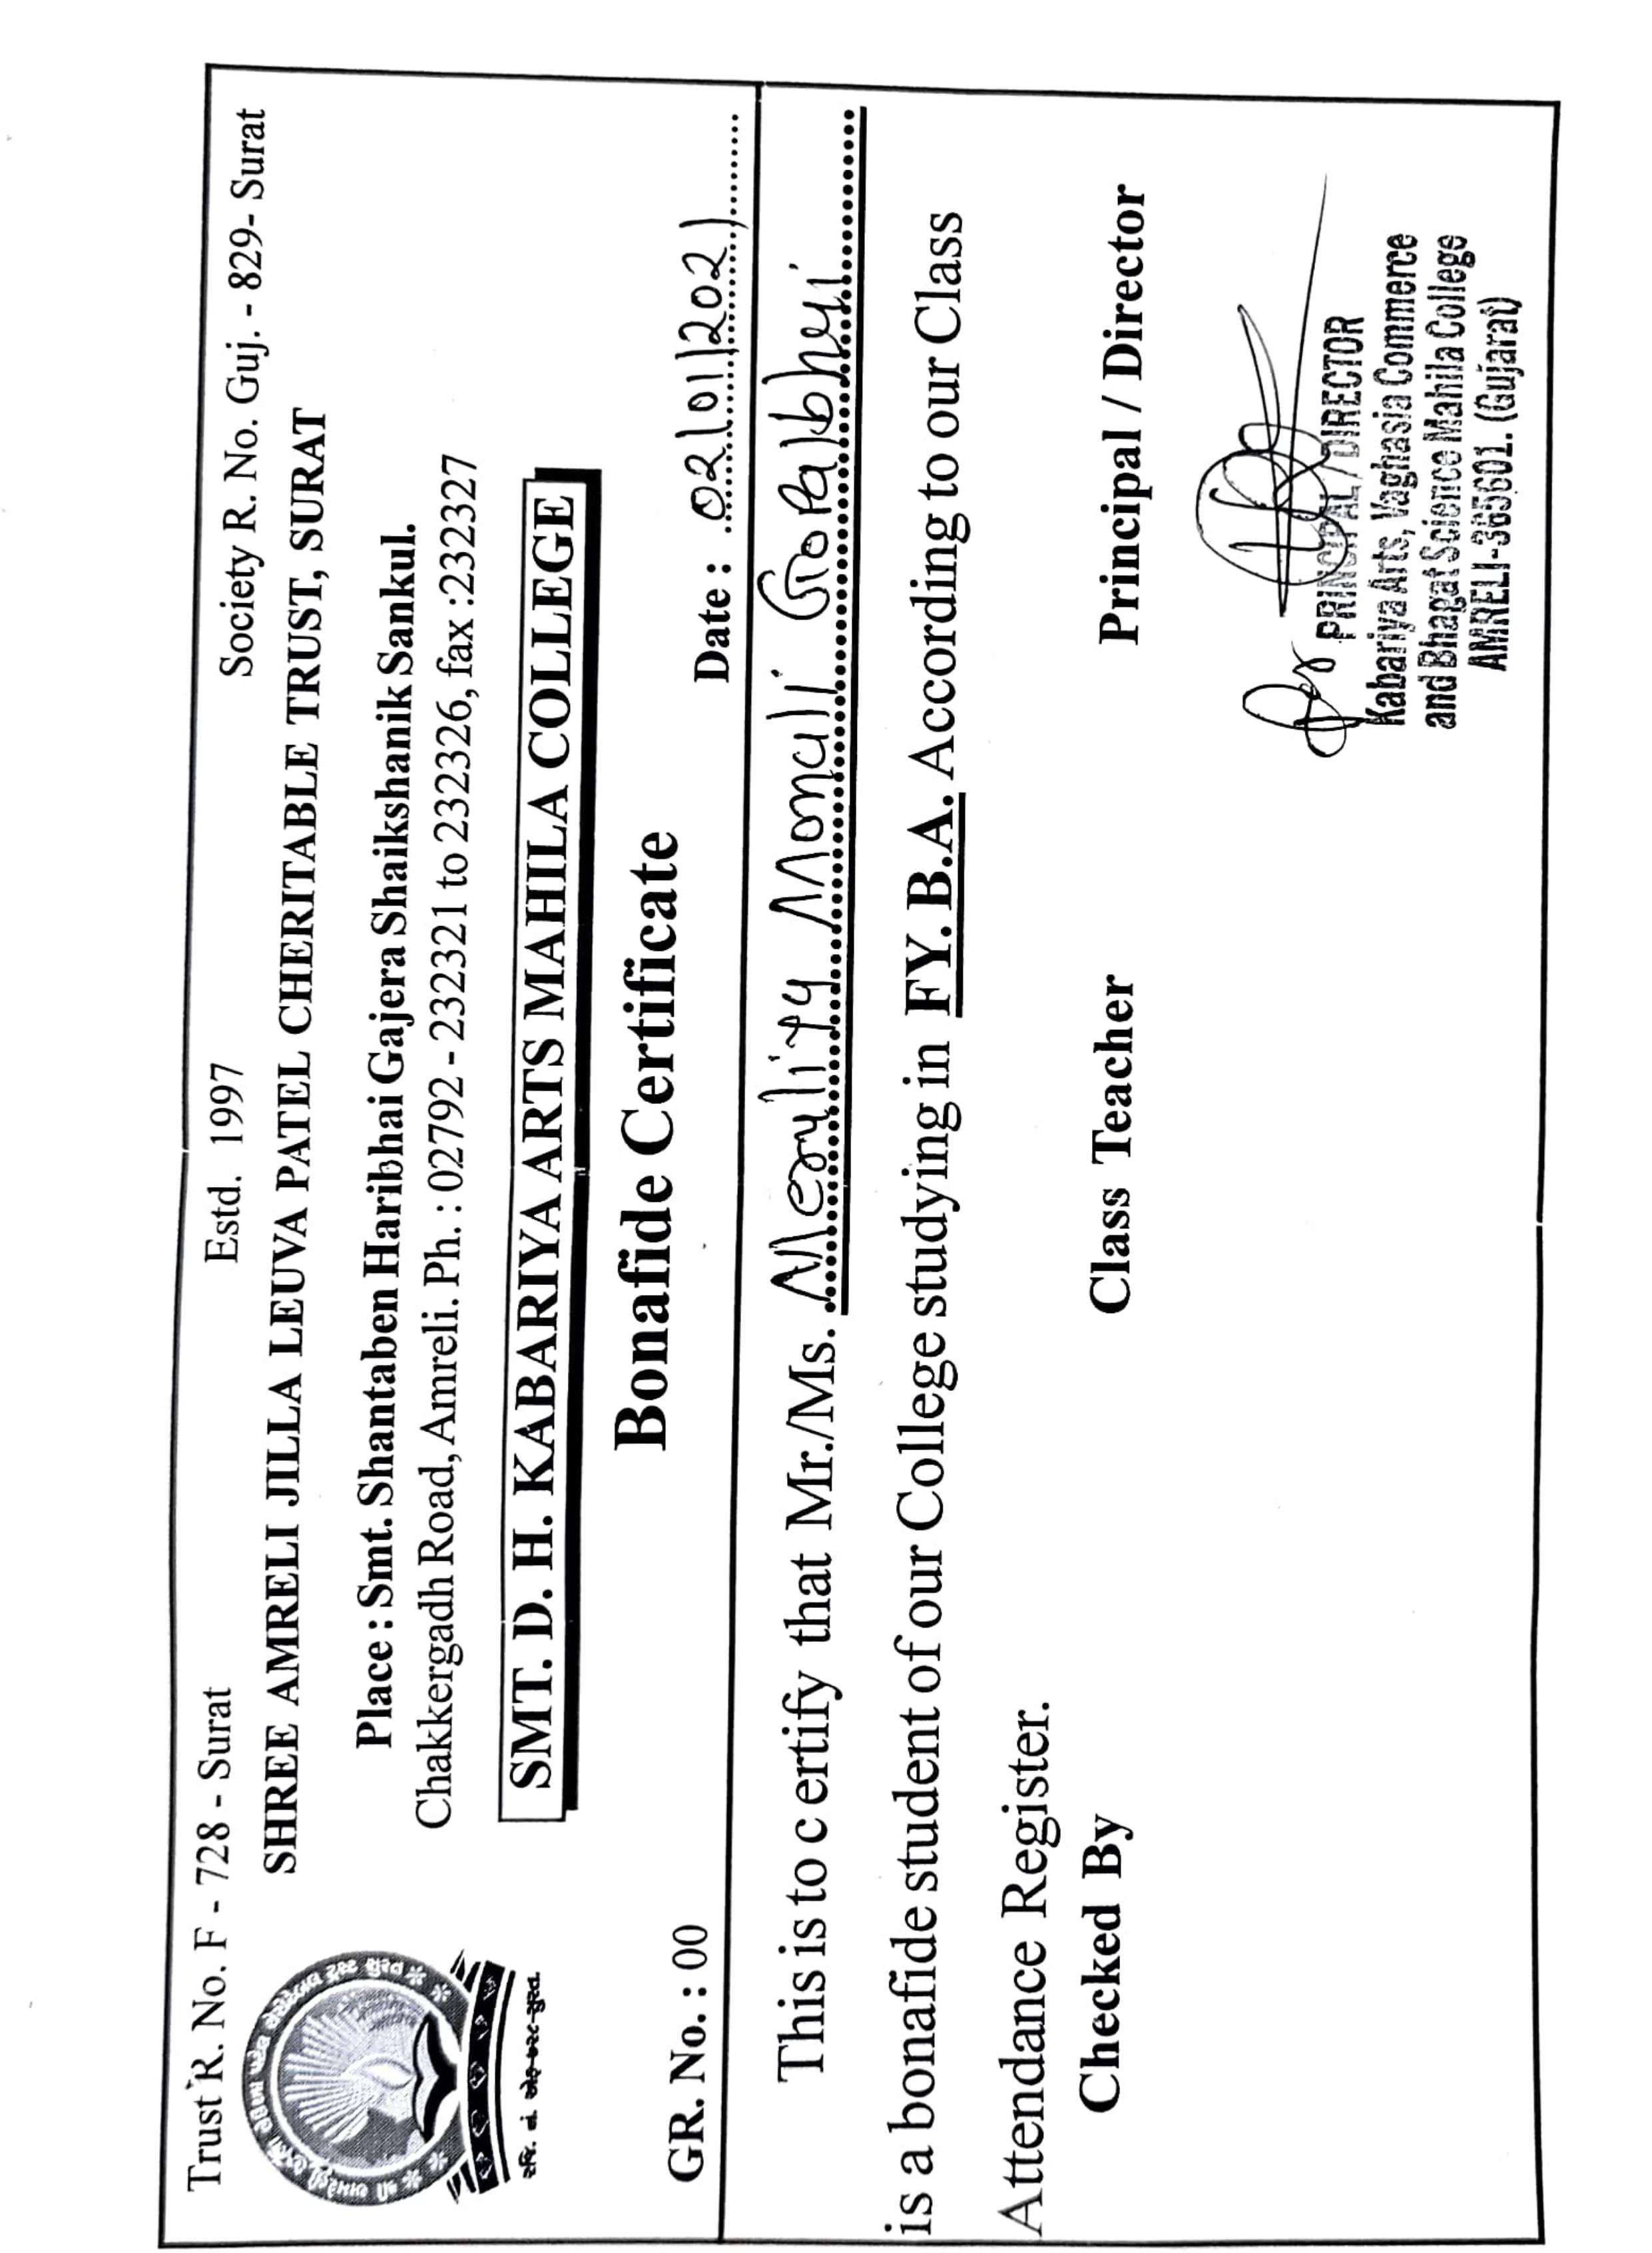 Trust R. No. F - 728 - Surat Estd. 1997 Society R. No. Guj. - 829- Surat
SHREE AMRELI JILLA LEUVA PATEL CHERITABLE TRUST, SURAT
Place : Smt. Shantaben Haribhai Gajera Shaikshanik Sankul.
Chakkergadh Road, Amreli. Ph. : 02792 - 232321 to 232326, fax :232327
SMT. D. H. KABARIYA ARTS MAHILA COLLEGE
Bonafide Certificate
GR. No. : 00 Date : 02/01/2021
This is to c ertify that Mr./Ms. Monali Gopalbhai
is a bonafide student of our College studying in FY.B.A. According to our Class
Attendance Register.
Checked By Class Teacher Principal / Director
PRINCIPAL / DIRECTOR
Kabariya Arts, Vaghasia Commerce
and Bhagat Science Mahila College
AMRELI-365601. (Gujarat)